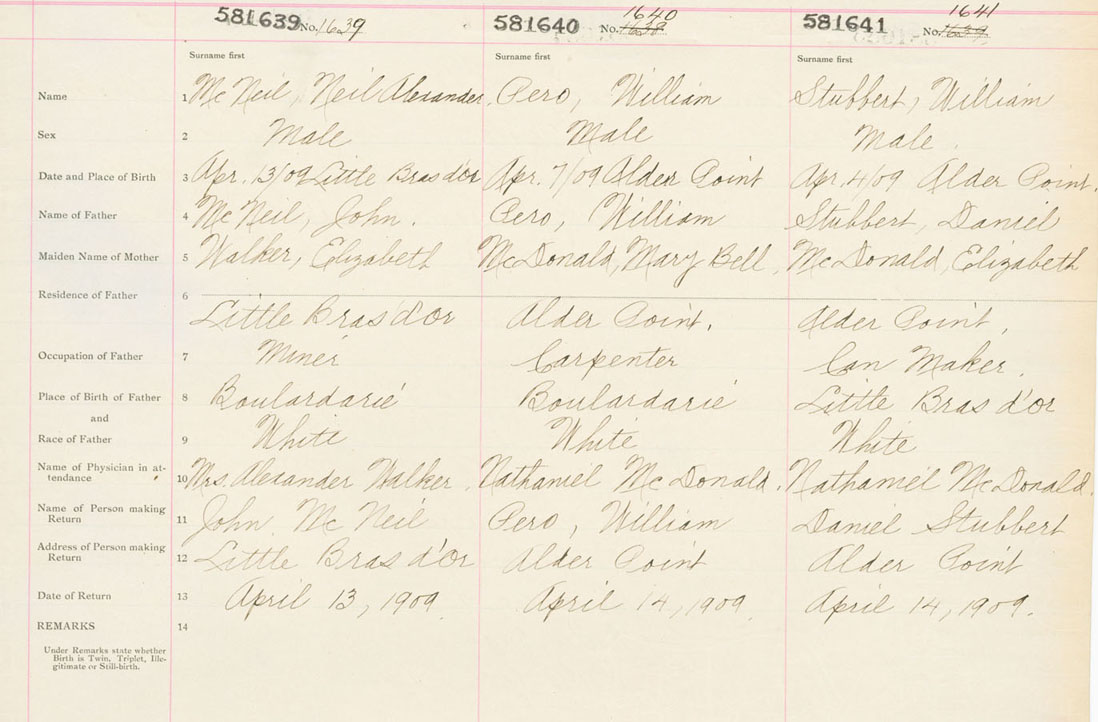 581639 No. 1639 581640 No. 1638 1640 581641 No. 1639 1641
Surname first Surname first Surname first
Name 1 Mc Neil, Neil Alexander. Pero, William Stubbert, William
Sex 2 Male Male Male.
Date and Place of Birth 3 Apr. 13/09 Little Bras d'or Apr. 7/09 Alder Point Apr. 4/09 Alder Point.
Name of Father 4 Mc Neil, John. Pero, William Stubbert, Daniel
Maiden Name of Mother 5 Walker, Elizabeth McDonald, Mary Bell, McDonald, Elizabeth
Residence of Father 6
Little Bras d'Or Alder Point. Alder Point,
Occupation of Father 7 Miner Carpenter Can Maker.
Place of Birth of Father 8 Boulardarie Boulardarie Little Bras d'or
and
Race of Father 9 White White White
Name of Physician in at-
tendance 10 Mrs. Alexander Walker. Nathaniel McDonald. Nathaniel McDonald.
Name of Person making
Return 11 John Mc Neil Pero, William Daniel Stubbert
Address of Person making
Return 12 Little Bras d'Or Alder Point Alder Point
Date of Return 13 April 13, 1909 April 14, 1909 April 14, 1909.
REMARKS 14
Under Remarks state whether
Birth is Twin, Triplet, Ille-
gitimate or Still-birth.